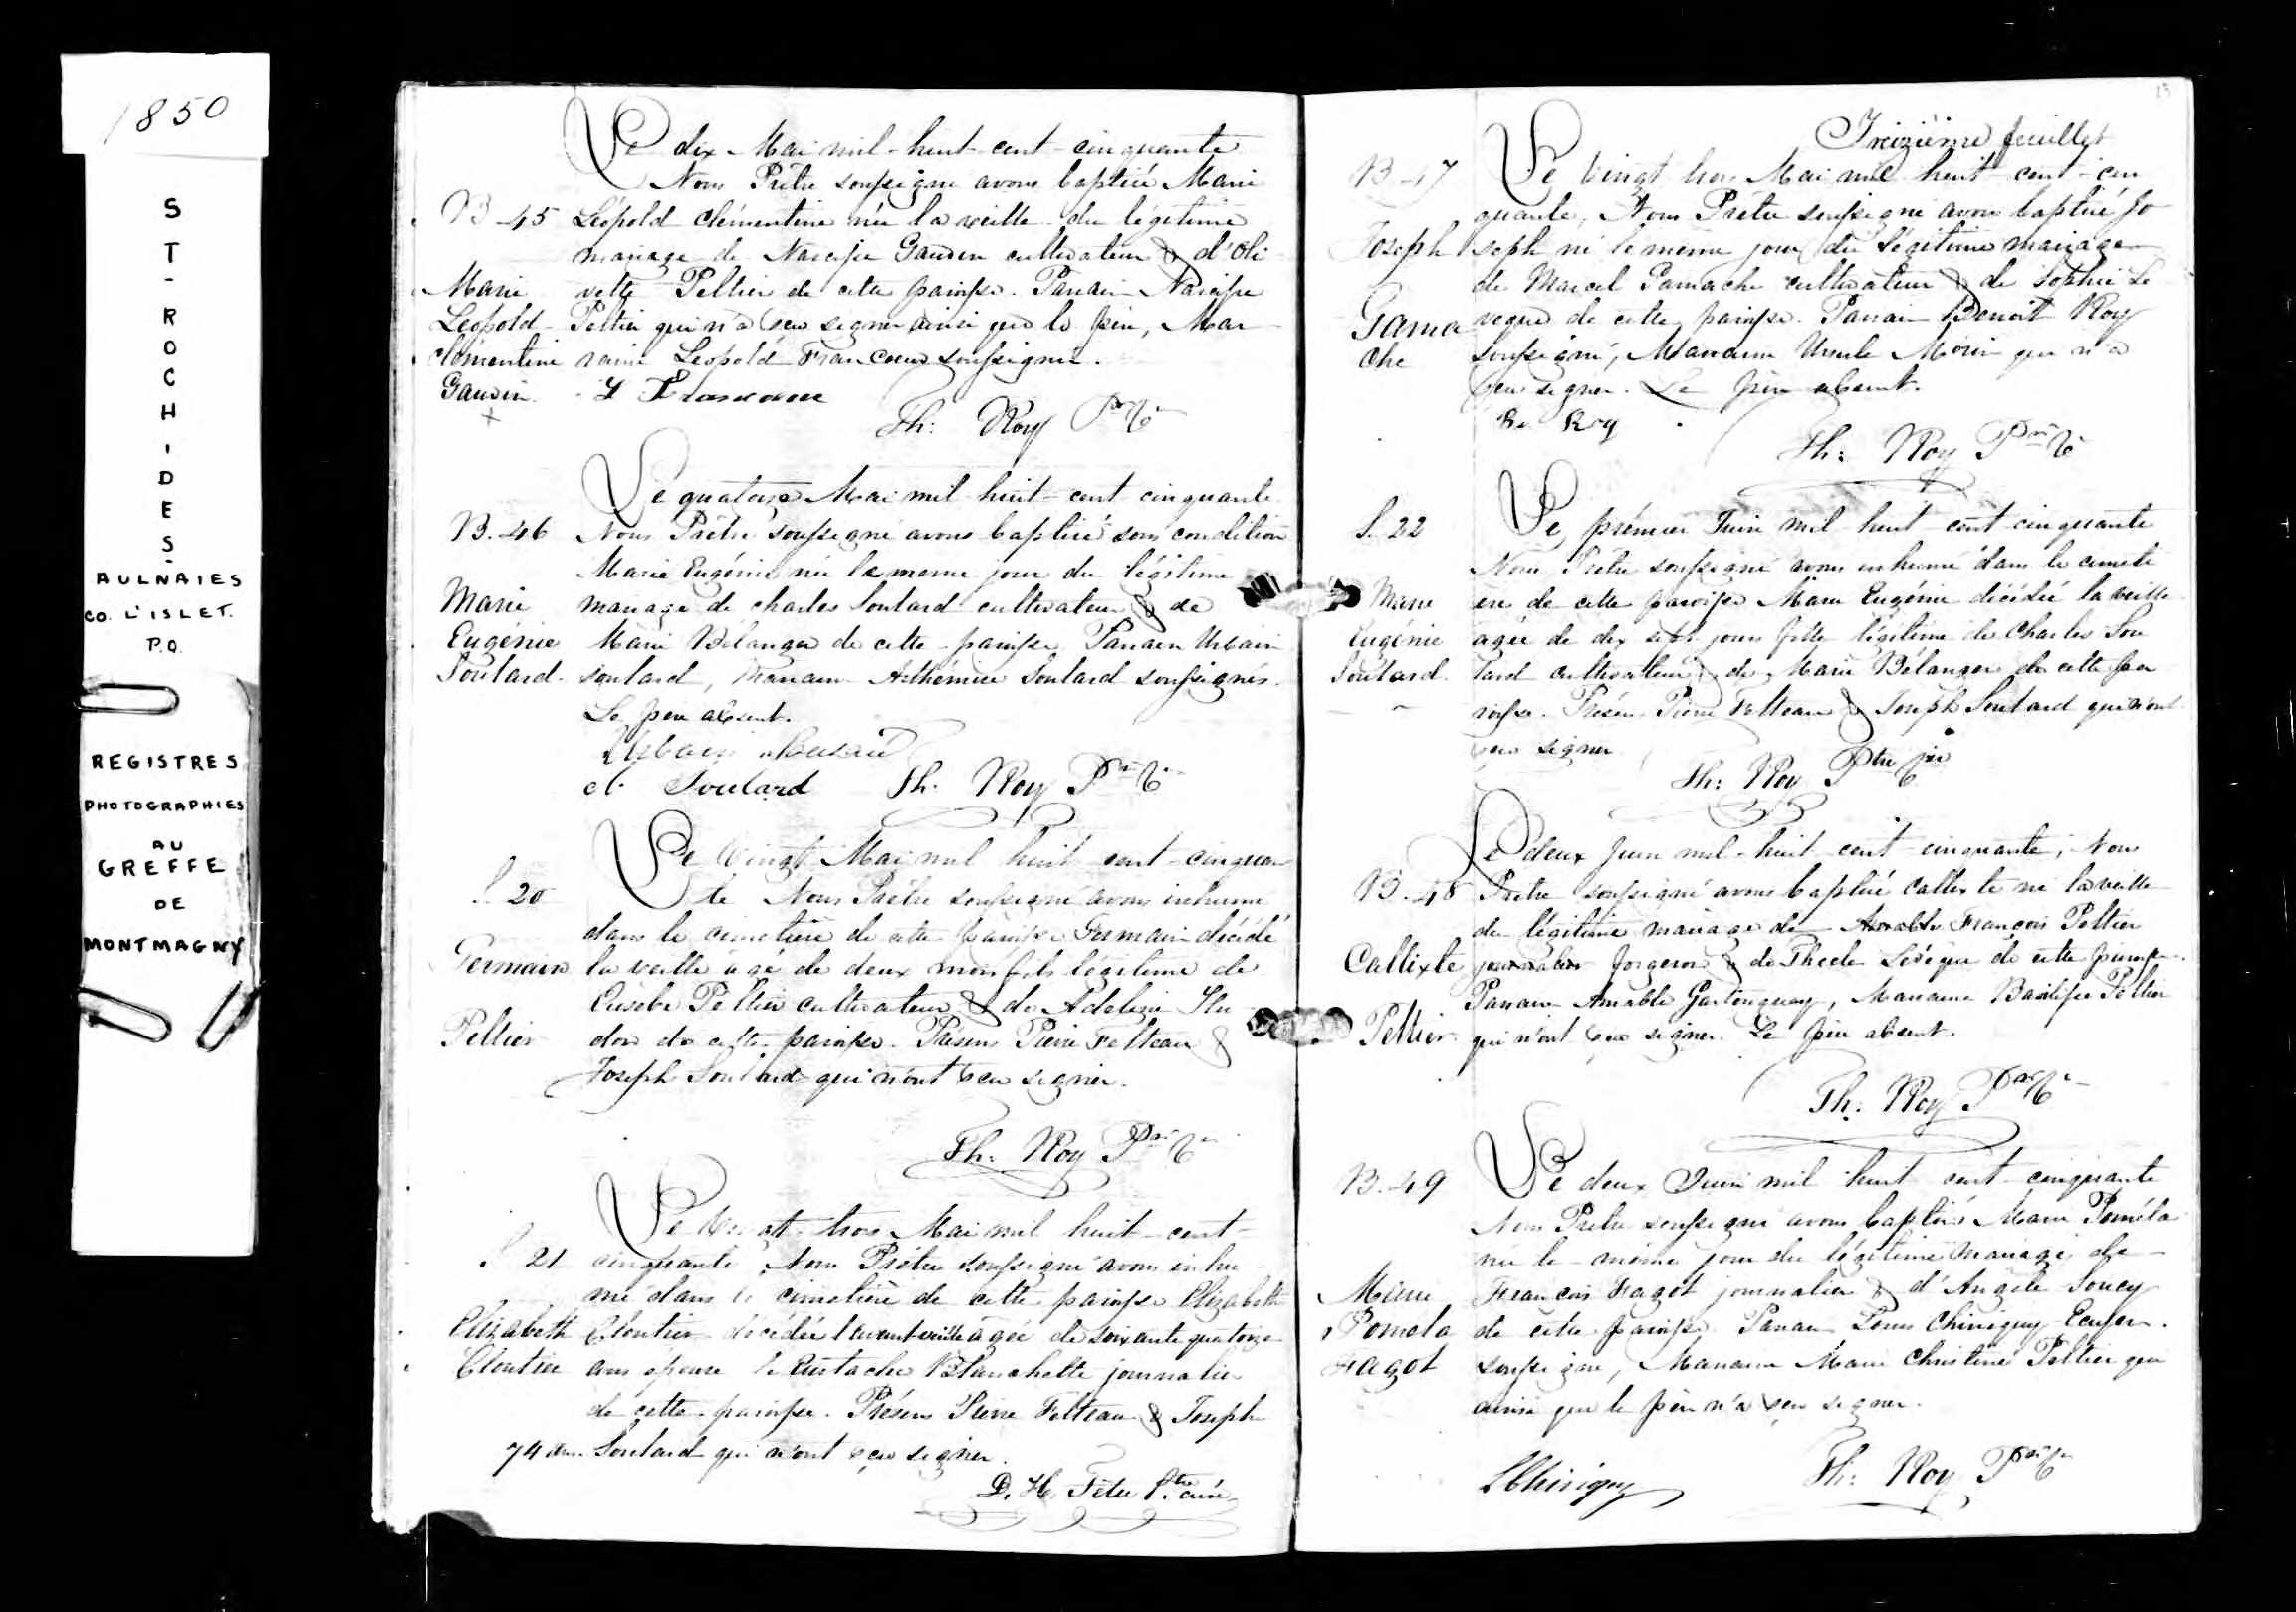 1850
ST-ROCH-DES-
AULNAIES
CO. L'ISLET.
P.Q.
REGISTRES
PHOTOGRAPHIES
AU
GREFFE
DE
MONTMAGNY
Le dix Mai mil-huit-cent-cinquante
Nous Prêtre soussigné avons baptisé Marie
B 45 Léopold Clémentine née la veille du légitime
mariage de Narcisse Gauvin cultivateur & d'Oli
Marie vette Peltier de cette paroisse. Parrain Narcisse
Léopold Peltier qui n'a seu signer ainsi que le père, Mar
Clémentine raine Léopold Francoeur soussignée.
Gauvin L Francoeur
Th: Roy Ptre
Le quatorze Mai mil huit-cent cinquante
B. 46 Nous Prêtre soussigné avons baptisé sous condition
Marie Eugénie née le meme jour du légitime
Marie mariage de Charles Soulard cultivateur & de
Eugénie Marie Bélanger de cette paroisse Parrain Urbain
Soulard. soulard, Marraine Arthémise Soulard soussignés.
Le père absent.
Urbain
A. Soulard Th. Roy Ptre
Le Vingt Mai mil huit cent-cinquan
S. 20 te Nous Prêtre soussigné avons inhumé
dans le cimetière de cette paroisse Germain décédé
Germain la veille agé de deux mois fils légitime de
Eusèbe Peltier cultivateur & de Adeline Hu
Peltier don de cette paroisse. Présens Pierre Felteau &
Joseph Soulard qui n'ont seu signer.
Th. Roy Ptre
Le Vingt-trois Mai mil huit-cent-
S 21 cinquante, Nous Prêtre soussigné avons inhu
mé dans le cimetière de cette paroisse Elizabeth
Elizabeth Cloutier décédée l'avant veille agée de soixante quatorze
Cloutier ans épouse de Eustache Blanchette journalier
de cette paroisse. Présens Pierre Felteau & Joseph
74 ans. Soulard qui n'ont seu signer.
D. H. Têtu Ptre curé
13
Treizième feuillet
B 47 Le Vingt trois Mai mil huit cent-cin
quante, Nous Prêtre soussigné avons baptisé Jo
Joseph seph né le meme jour du légitime mariage
de Marcel Gamache cultivateur & de Sophie Le
Gama veque de cette paroisse. Parrain Benoît Roy
che soussigné, Marraine Ursule Morin qui n'a
seu signer. Le père absent.
Be. Roy
Th: Roy Ptre
S. 22 Le prémier Juin mil huit cent cinquante
Nous Prêtre soussigné avons inhumé dans le cimeti
Marie ere de cette paroisse Marie Eugénie décédée la veille
Eugénie agée de dix sept jours fille légitime de Charles Sou
Soulard. lard cultivateur & de Marie Bélanger de cette pa
roisse. Présens Pierre Felteau & Joseph Soulard qui n'ont
seu signer
Th: Roy Ptre
Le deux Juin mil-huit-cent cinquante, Nous
B. 48 Prêtre soussigné avons baptisé Callixte né la veille
du légitime mariage de Amable François Peltier
Callixte journalier forgeron & de Thecle Lévêque de cette paroisse.
Parrain Amable Gastonguay, Marraine Basilisse Peltier
Peltier qui n'ont seu signer. Le père absent.
Th: Roy Ptre
B. 49 Le deux Juin mil huit cent-cinquante
Nous Prêtre soussigné avons baptisé Marie Poméla
née le même jour du légitime mariage de
Marie François Fragot journalier & d'Angèle Soucy
Pomela de cette paroisse. Parrain Louis Chinigny Ecuyer.
Fragot soussigné, Marraine Marie Christine Peltier qui
ainsi que le père n'a seu signer.
LChinigny Th: Roy Ptre